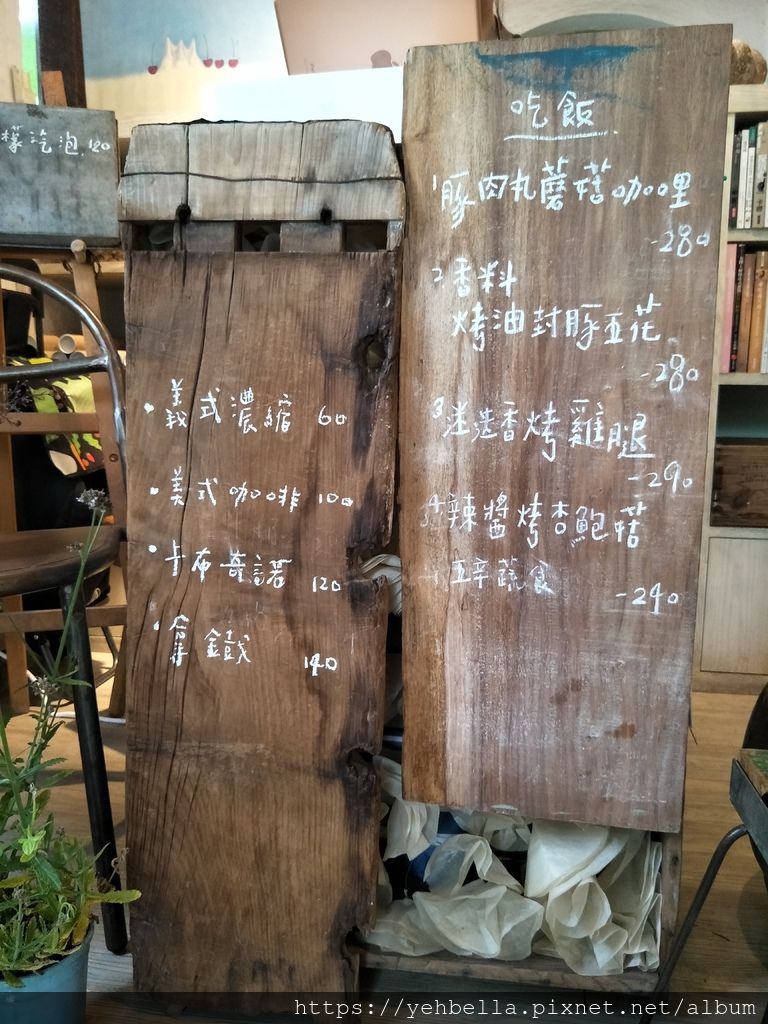 檬汽泡 120
義式濃縮 60
美式咖啡 100
卡布奇諾 120
拿鐵 140
吃飯
1 豚肉丸蘑菇咖哩
-280
2 香料
烤油封豚五花
-280
3 迷迭香烤雞腿
-290
4 辣醬烤杏鮑菇
五辛蔬食
-240
https://yehbella.pixnet.net/album